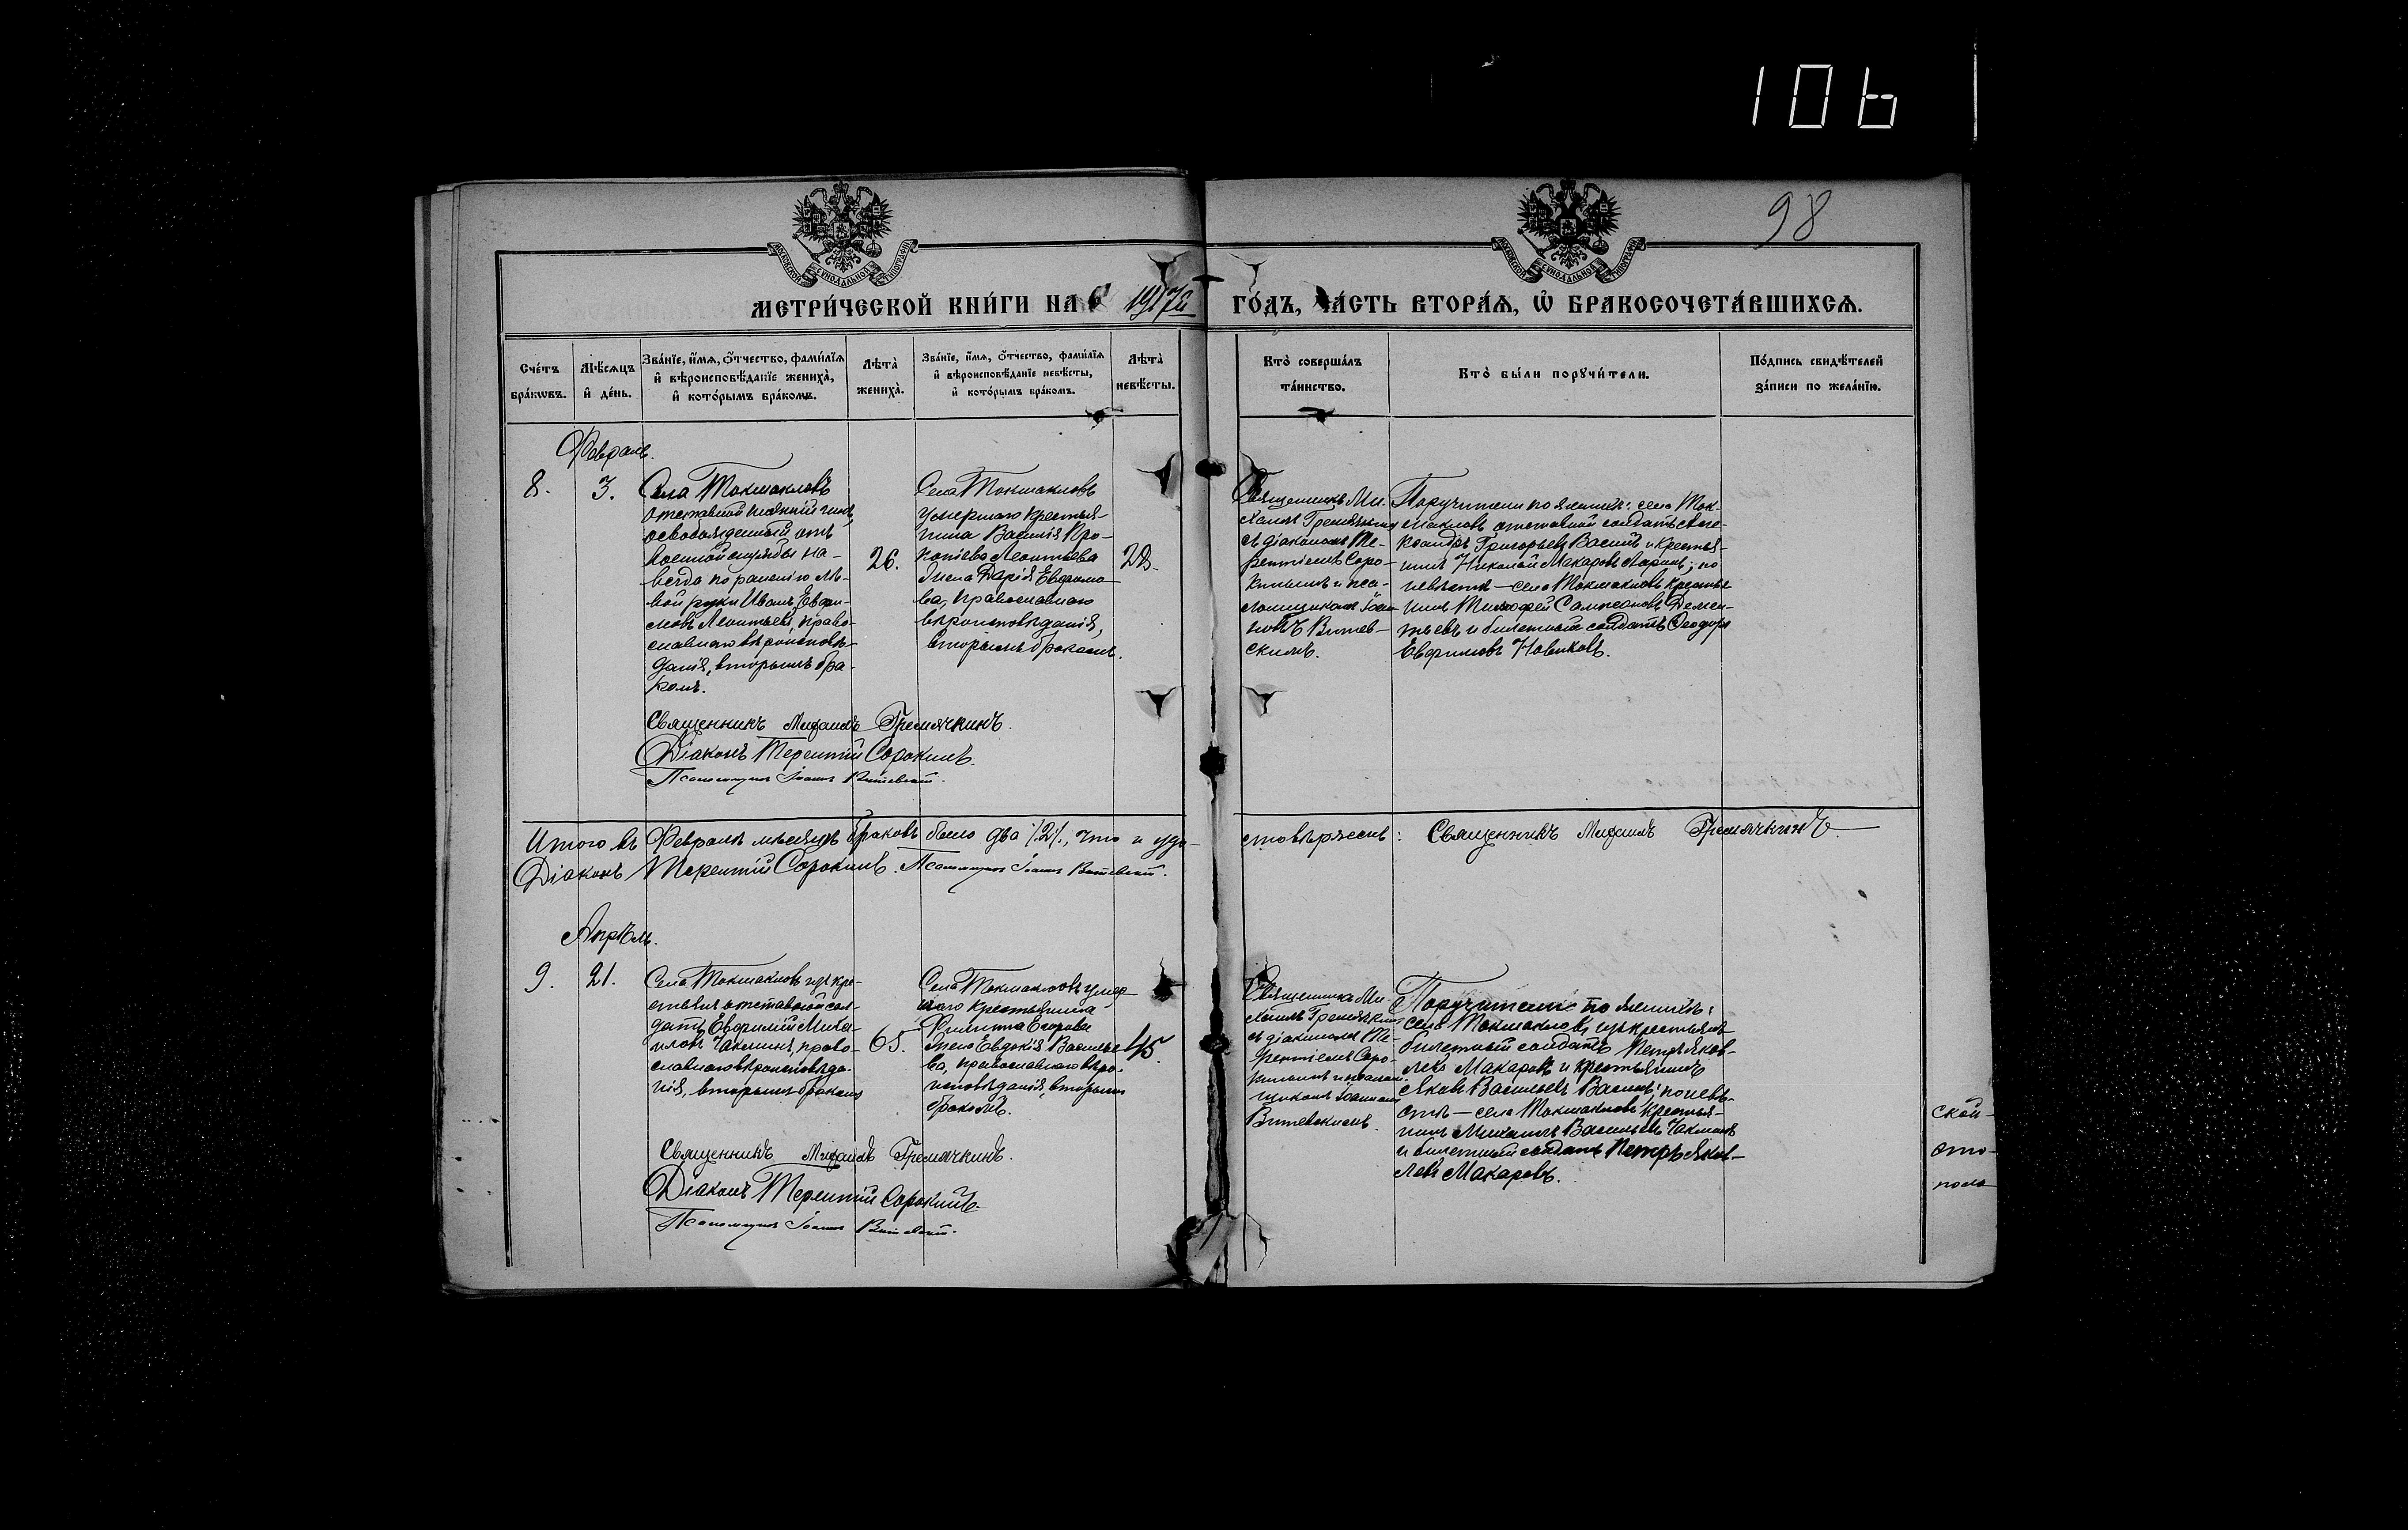 106
98
МОСКОВСКОЙ СѴНОДАЛЬНОЙ ТИПОГРАФІИ
МОСКОВСКОЙ СѴНОДАЛЬНОЙ ТИПОГРАФІИ
МЕТРИ́ЧЕСКОЙ КНИ́ГИ НА 1917й ГО́ДЪ, ЧА́СТЬ ВТОРА́Ѧ, Ѽ БРАКОСОЧЕТА́ВШИХСѦ.
Сче́тъ бра́кѡвъ.
Мѣ́сѧцъ и҆ де́нь.
Зва́нїе, и҆́мѧ, ѻ҆́тчество, фами́лїѧ и҆ вѣроисповѣ́данїе жениха̀, и҆ кото́рымъ бра́комъ.
Лѣта̀ жениха̀.
Зва́нїе, и҆́мѧ, ѻ҆́тчество, фами́лїѧ и҆ вѣроисповѣ́данїе невѣ́сты, и҆ кото́рымъ бра́комъ.
Лѣта̀ невѣ́сты.
Кто̀ соверша́лъ та́инство.
Кто̀ бы́ли порꙋчи́тели.
По́дпись свидѣ́телей за́писи по жела́нїю.
Февраль.
8.
3.
Села Токмакловъ
отставной нижній чинъ,
освобожденный отъ
военной службы на-
всегда по раненію лѣ-
вой руки Иванъ Евфи-
мовъ Леонтьевъ, право-
славнаго вѣроисповѣ-
данія, вторымъ бра-
комъ.
26.
Села Токмакловъ
умершаго крестья-
нина Василія Про-
копіева Леонтьева
жена Дарія Евфимо-
ва, православнаго
вѣроисповѣданія,
вторымъ бракомъ.
28.
Священникъ Ми-
хаилъ Гремячкинъ
съ діакономъ Те-
рентіемъ Соро-
кинымъ и пса-
ломщикомъ Іоан-
номъ Витев-
скимъ.
Поручители по женихѣ: села Ток-
макловъ отставной солдатъ Алек-
сандръ Григорьевъ и крестья-
нинъ Николай Макаровъ Ларинъ; по
невѣстѣ – села Токмакловъ крестья-
нинъ Тимофей Сампсоновъ Демен-
тьевъ и билетный солдатъ Ѳеодоръ
Евфимовъ Новиковъ.
Священникъ Михаилъ Гремячкинъ.
Діаконъ Терентій Сорокинъ.
Псаломщикъ Іоаннъ Витевскій.
Итого въ Февралѣ мѣсяцѣ браковъ было два /2/, что и удо-
стовѣряемъ: Священникъ Михаилъ Гремячкинъ.
Діаконъ Терентій Сорокинъ. Псаломщикъ Іоаннъ Витевскій.
Апрѣль.
9.
21.
Села Токмакловъ изъ кре-
стьянъ отставной сол-
датъ Евфимій Миха-
иловъ Чакминъ, право-
славнаго вѣроисповѣда-
нія, вторымъ бракомъ
65.
Села Токмакловъ умер-
шаго крестьянина
Филиппа Егорова
жена Евдокія Василье-
ва, православнаго вѣро-
исповѣданія, вторымъ
бракомъ.
45.
Священникъ Ми-
хаилъ Гремячкинъ
съ діакономъ Те-
рентіемъ Соро-
кинымъ и псалом-
щикомъ Іоанномъ
Витевскимъ.
Поручители по женихѣ:
села Токмакловъ изъ крестьянъ
билетный солдатъ Петръ Яков-
левъ Макаровъ и крестьянинъ
Яковъ Васильевъ; по невѣ-
стѣ – села Токмакловъ крестья-
нинъ Михаилъ Васильевъ Чакминъ
и билетный солдатъ Петръ Яков-
левъ Макаровъ.
Священникъ Михаилъ Гремячкинъ.
Діаконъ Терентій Сорокинъ.
Псаломщикъ Іоаннъ Витевскій.
ской-
сто-
поло-